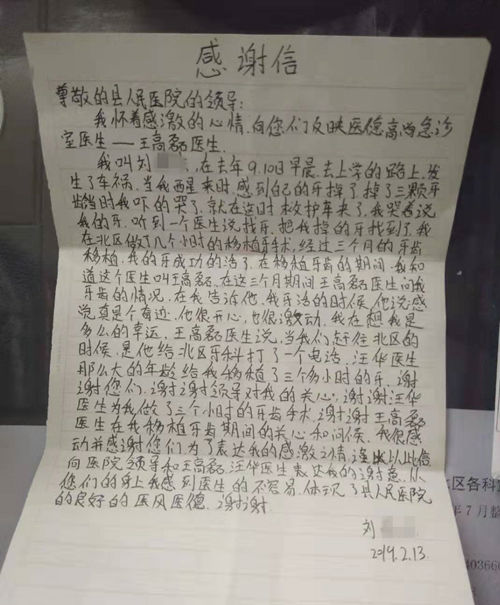 感谢信
尊敬的县人民医院的领导:
我怀着感激的心情,向您们反映医德高尚急诊
室医生——王高磊医生.
我叫刘 , 在去年9.10日早晨.去上学的路上.发
生了车祸.当我西星来时.感到自己的牙掉了.掉了三颗牙
齿当时我吓的哭了.就在这时救护车来了.我哭着说
我的牙.听到一个医生说找牙.把我掉的牙找到了.我
在北区做了几个小时的移植牙手术.经过三个月的牙齿
移植.我的牙成功的活了.在移植牙齿的期间.我知
道这个医生叫王高磊.在这三个月期间王高磊医生问我
牙齿的情况.在我告诉他.我牙活的时候.他说感
觉真是个奇迹.他很开心,也很激动.我在想我是
多么的幸运.王高磊医生说.当我们赶往北区的
时候.是他给北区牙科打了一个电话.汪华医生
那么大的年龄给我移植了三个多小时的牙.谢
谢您们.谢谢领导对我的关心.谢谢汪华
医生为我做了三个小时的牙齿手术.谢谢王高磊
医生在我移植牙齿期间的关心和问候.我很感
动并感谢您们为了表达我的感激之情.以此信
向医院领导和王高磊.汪华医生表达我的谢意.从
您们的身上我感到医生的不容易.体现了县人民医院
的良好的医风医德.谢谢
刘
2019.2.13.
区各科
年7月
40366